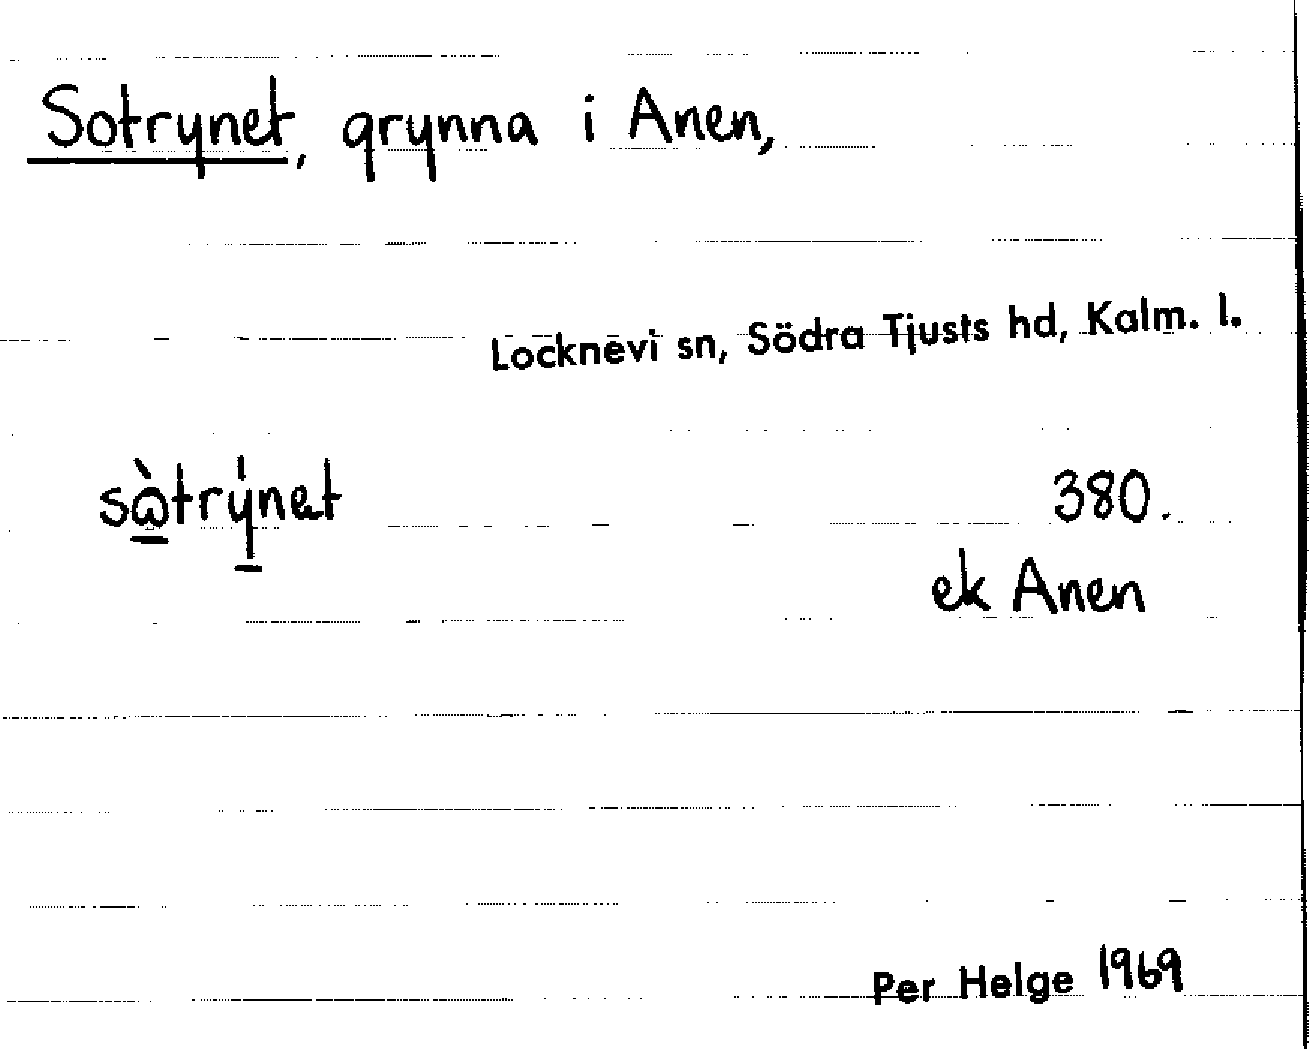 Sotrynet, grynna i Anen,
Locknevi sn, Södra Tjusts hd, Kalm. l.
380.
ek Anen
Per Helge 1969